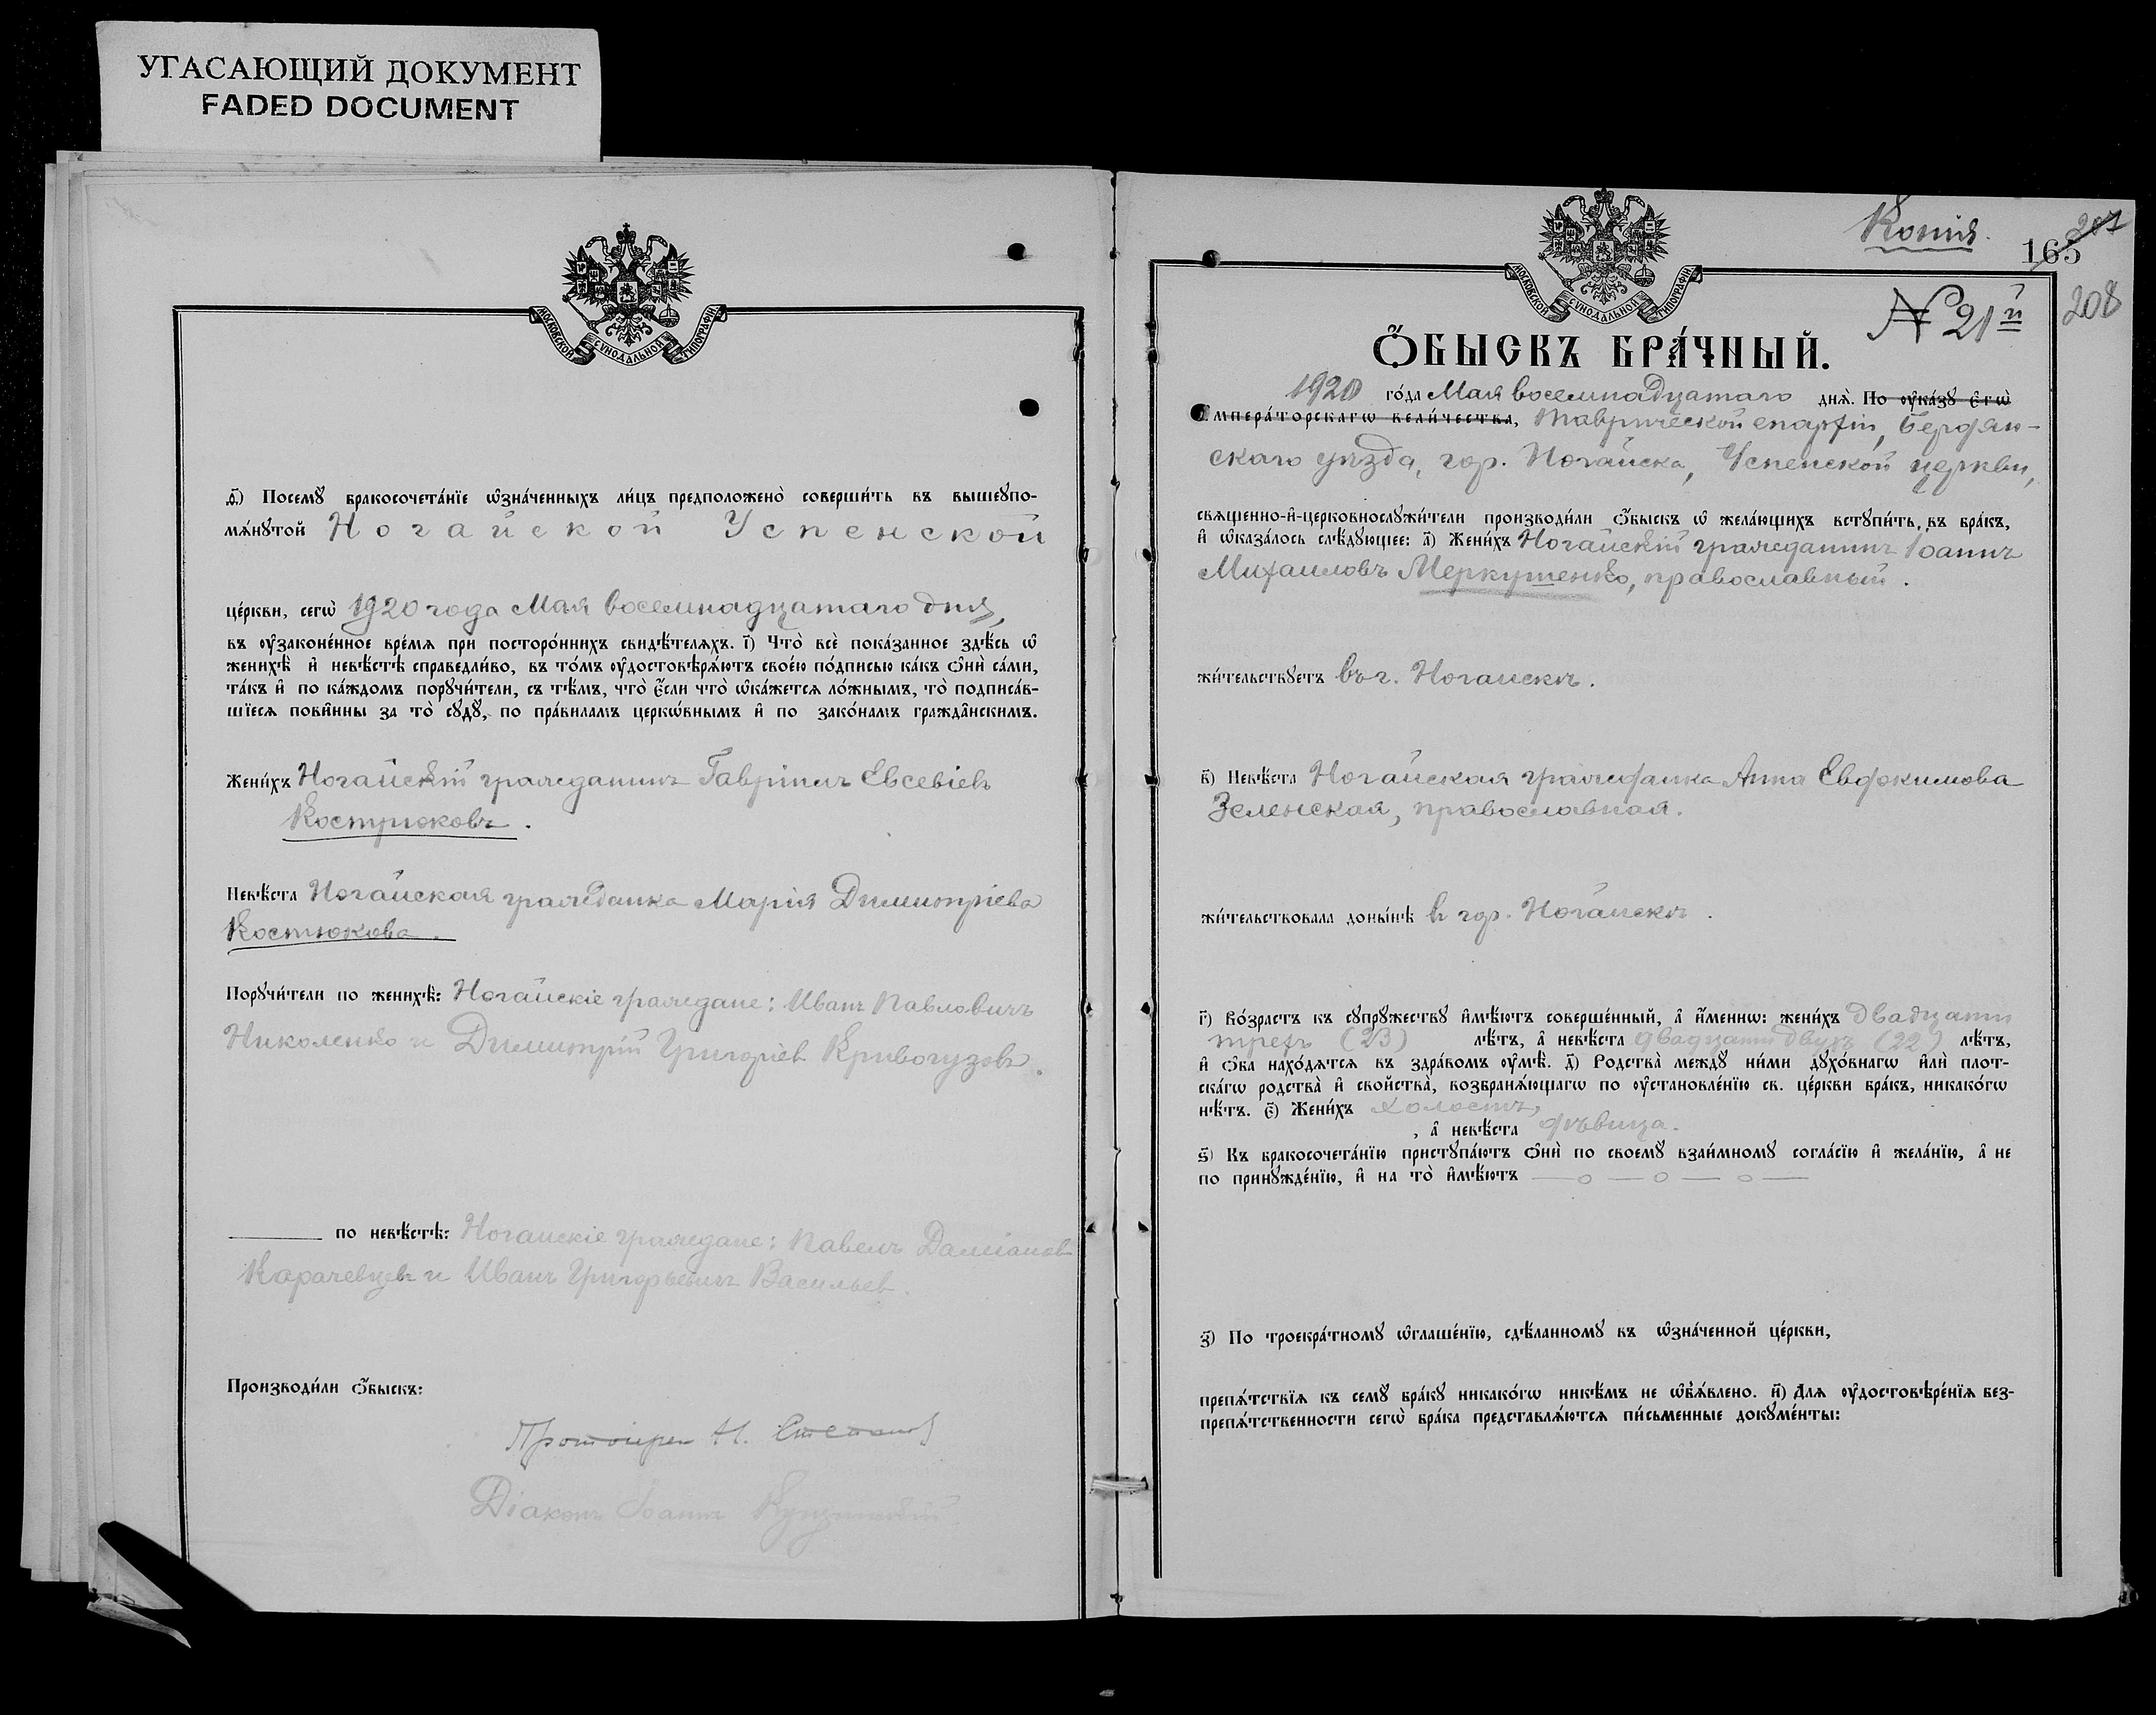 УГАСАЮЩИЙ ДОКУМЕНТ
FADED DOCUMENT
МОСКОВСКОЙ СѴНОДАЛЬНОЙ ТИПОГРАФІИ
ѳ҃) Посемꙋ бракосочета́нїе ѡ҆зна́ченныхъ ли́цъ предположено̀ соверши́ть въ вышеꙋпо-
мѧ́нꙋтой Ногайской Успенской
це́ркви, сегѡ̀ 1920 года Мая восемнадцатаго дня,
въ ᲂу҆законе́нное вре́мѧ при посторо́ннихъ свидѣ́телѧхъ. і҃) Что̀ всѐ пока́занное здѣ́сь ѡ҆
женихѣ̀ и҆ невѣ́стѣ справедли́во, въ то́мъ ᲂу҆достовѣрѧ́ютъ свое́ю по́дписью ка́къ ѻ҆нѝ са́ми,
та́къ и҆ по ка́ждомъ порꙋчи́тели, съ тѣ́мъ, что̀ є҆́сли что̀ ѡ҆ка́жетсѧ ло́жнымъ, то̀ подписа́в-
шїесѧ пови́нны за то̀ сꙋдꙋ̀, по пра́виламъ церко́внымъ и҆ по зако́намъ гражда́нскимъ.
Жени́хъ Ногайскій гражданинъ Гавріилъ Евсевіевъ
Кострюковъ.
Невѣ́ста Ногайская гражданка Марія Димитріева
Костюкова.
Порꙋчи́тели по женихѣ̀: Ногайскіе граждане: Иванъ Павловичъ
Николенко и Димитрій Григоріев Кривогузовъ.
по невѣ́стѣ: Ногайскіе граждане: Павелъ Даміанов
Карачевцевъ и Иванъ Григорьевичъ Васильев.
Производи́ли ѻ҆́быскъ:
Протоіерей Н. Степанов
Діаконъ Іоаннъ
Копія.
207
165
208
МОСКОВСКОЙ СѴНОДАЛЬНОЙ ТИПОГРАФІИ
N 21й
Ѻ҆́БЫСКЪ БРА́ЧНЫЙ.
1920 го́да Мая восемнадцатаго днѧ̀. По ᲂу҆ка́зꙋ є҆гѡ̀
Императо́рскагѡ вели́чества, Таврической епархіи, Бердян-
скаго уѣзда, гор. Ногайска, Успенской церкви,
свѧще́нно-и҆-церковнослꙋжи́тели производи́ли ѻ҆́быскъ ѡ҆ жела́ющихъ встꙋпи́ть въ бра́къ,
и҆ ѡ҆каза́лось слѣ́дꙋющее: а҃) Жени́хъ Ногайскій гражданинъ Іоаннъ
Михаиловъ Меркутенко, православный.
жи́тельствꙋетъ въ г. Ногайскѣ.
в҃) Невѣ́ста Ногайская гражданка Анна Евдокимова
Зеленская, православная.
жи́тельствовала доны́нѣ в гор. Ногайскѣ.
г҃) Во́зрастъ къ сꙋпрꙋ́жествꙋ и҆мѣ́ютъ соверше́нный, а҆ и҆́меннѡ: жени́хъ двадцати
трехъ (23) лѣ́тъ, а҆ невѣ́ста двадцати двухъ (22) лѣ́тъ,
и҆ ѻ҆́ба нахо́дѧтсѧ въ здра́вомъ ᲂу҆мѣ̀. д҃) Родства̀ междꙋ̀ ни́ми дꙋхо́внагѡ и҆лѝ плот-
ска́гѡ родства̀ и҆ сво́йства, возбранѧ́ющагѡ по ᲂу҆становле́нїю св. це́ркви бра́къ, никако́гѡ
нѣ́тъ. є҃) Жени́хъ холостъ,
, а҆ невѣ́ста дѣвица.
ѕ҃) Къ бракосочета́нїю пристꙋпа́ютъ ѻ҆нѝ по своемꙋ̀ взаи́мномꙋ согла́сїю и҆ жела́нїю, а҆ не
по принꙋжде́нїю, и҆ на то̀ и҆мѣ́ютъ — о — о — о —
з҃) По троекра́тномꙋ ѡ҆глаше́нїю, сдѣ́ланномꙋ въ ѡ҆зна́ченной це́ркви,
препѧ́тствїѧ къ семꙋ̀ бра́кꙋ никако́гѡ никѣ́мъ не ѡ҆б̾ѧ́влено. и҃) Для ᲂу҆достовѣре́нїѧ без-
препѧ́тственности сегѡ̀ бра́ка представлѧ́ютсѧ пи́сьменные докꙋме́нты: